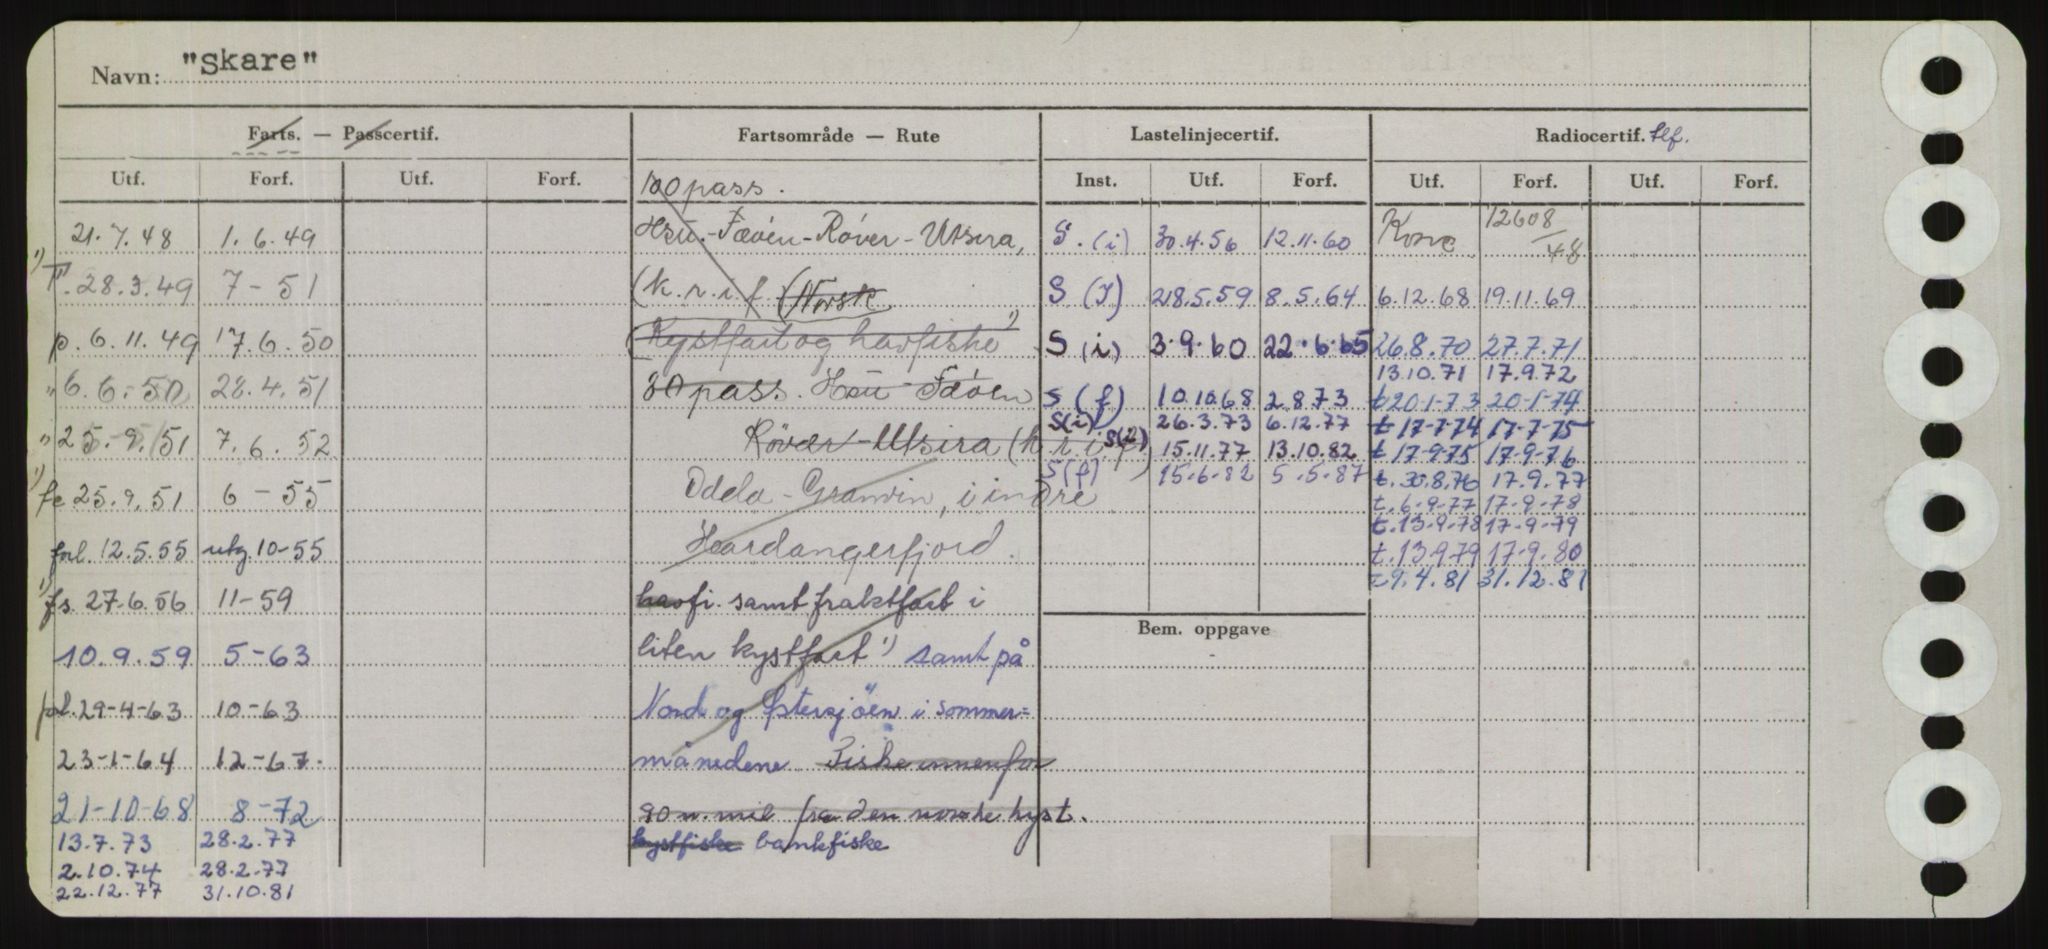 Navn: "Skare"
Farts. — Passcertif.
Fartsområde — Rute
Lastelinjecertif.
Radiocertif. tlf.
Utf. Forf. Utf. Forf.
100 pass.
Inst. Utf. Forf.
Utf. Forf. Utf. Forf.
21.7.48 1.6.49
1) 28.3.49 7-51
p. 6.11.49 17.6.50
" 6.6.50 28.4.51
" 25.9.51 7.6.52
1) fe 25.9.51 6-55
forl. 12.5.55 utg. 10-55
1) fs. 27.6.56 11-59
10.9.59 5-63
forl. 29-4-63 10-63
23-1-64 12-67.
21-10-68 8-72
13.7.73 28.2.77
2.10.74 28.2.77
22.12.77 31.10.81
Hsu.-Fæøen-Røver-Utsira,
(k.r.i.f. (Norsk
(Kystfart og havfiske 1)
80 pass. Hsu-Fæøen
Røvær-Utsira (k.r.i.f)
Odda-Granvin, i indre
Hardangerfjord.
havfi. samt fraktfart i
liten kystfart 1) samt på
Nord og Østersjöen i sommer=
månedene Fiske innenfor
90 n. mil fra den norske kyst.
kystfiske bankfiske
S. (i) 30.4.56 12.11.60
S (I) 28.5.59 8.5.64
S (i) 3.9.60 22.6.65
S (f) 10.10.68 2.8.73
S(i) 26.3.73 6.12.77
S(i) 15.11.77 13.10.82
S(f) 15.6.82 5.5.87
Bem. oppgave
12608/48
6.12.68 19.11.69
26.8.70 27.7.71
13.10.71 17.9.72
t 20-1-73 20-1-74
t 17-7-74 17-7-75
t 17-9-75 17-9-76
t. 30.8.76 17.9.77
t. 6-9-77 17-9-78
t. 13-9-78 17-9-79
t. 13-9-79 17-9.80
t 9.4.81 31.12.81